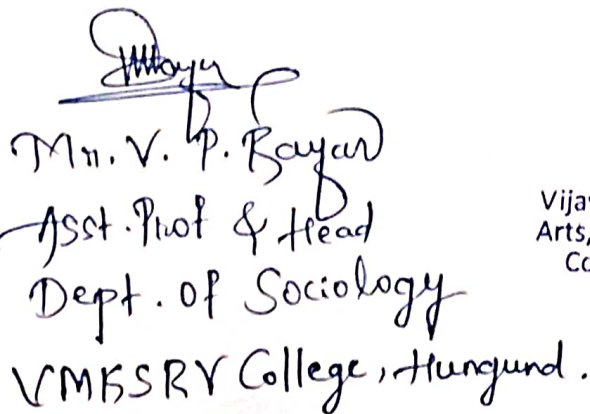 Mr. V. P. Rayar
Asst. Prof & Head
Dept. Of Sociology
VMKSRV College, Hungund.
Vija
Arts,
Co